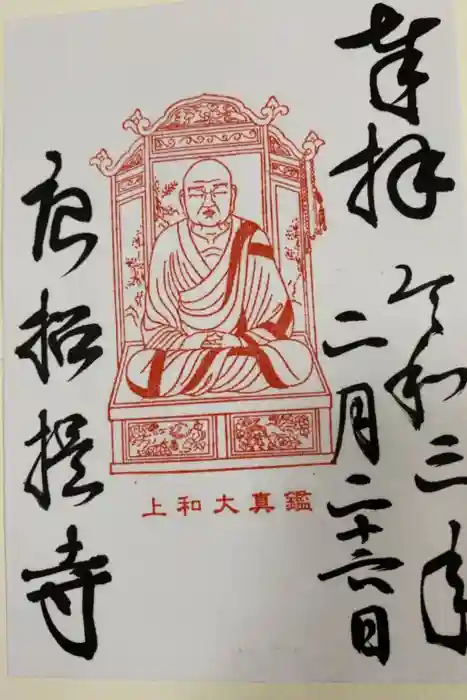 奉拝
令和三年
二月二十六日
上和大真鑑
唐招提寺